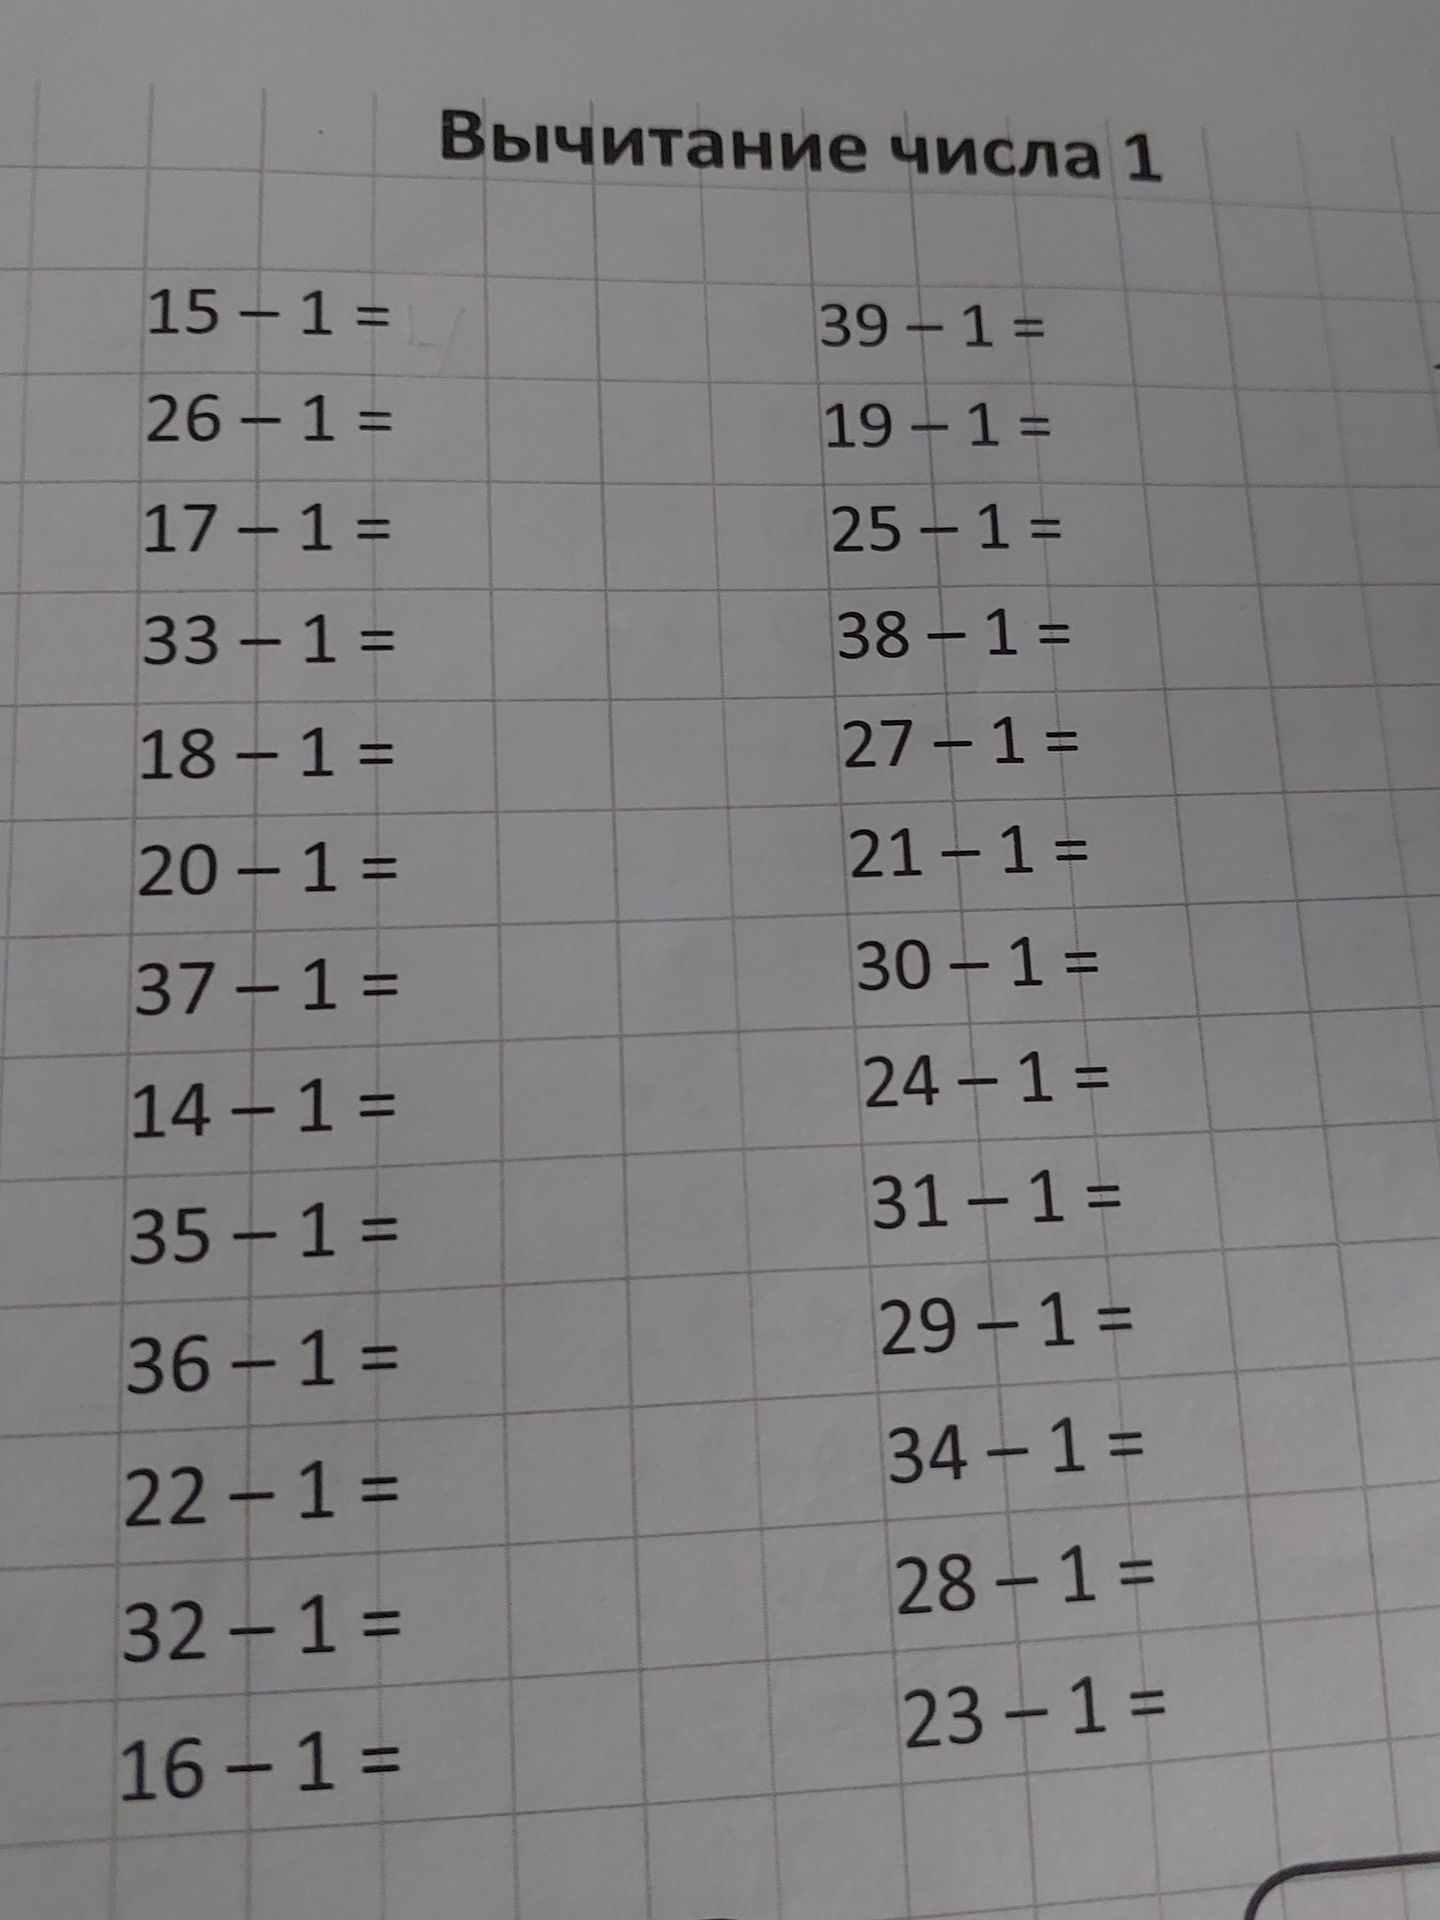 Вычитание числа 1
15 – 1 =
26 – 1 =
17 – 1 =
33 – 1 =
18 – 1 =
20 – 1 =
37 – 1 =
14 – 1 =
35 – 1 =
36 – 1 =
22 – 1 =
32 – 1 =
16 – 1 =
39 – 1 =
19 – 1 =
25 – 1 =
38 – 1 =
27 – 1 =
21 – 1 =
30 – 1 =
24 – 1 =
31 – 1 =
29 – 1 =
34 – 1 =
28 – 1 =
23 – 1 =